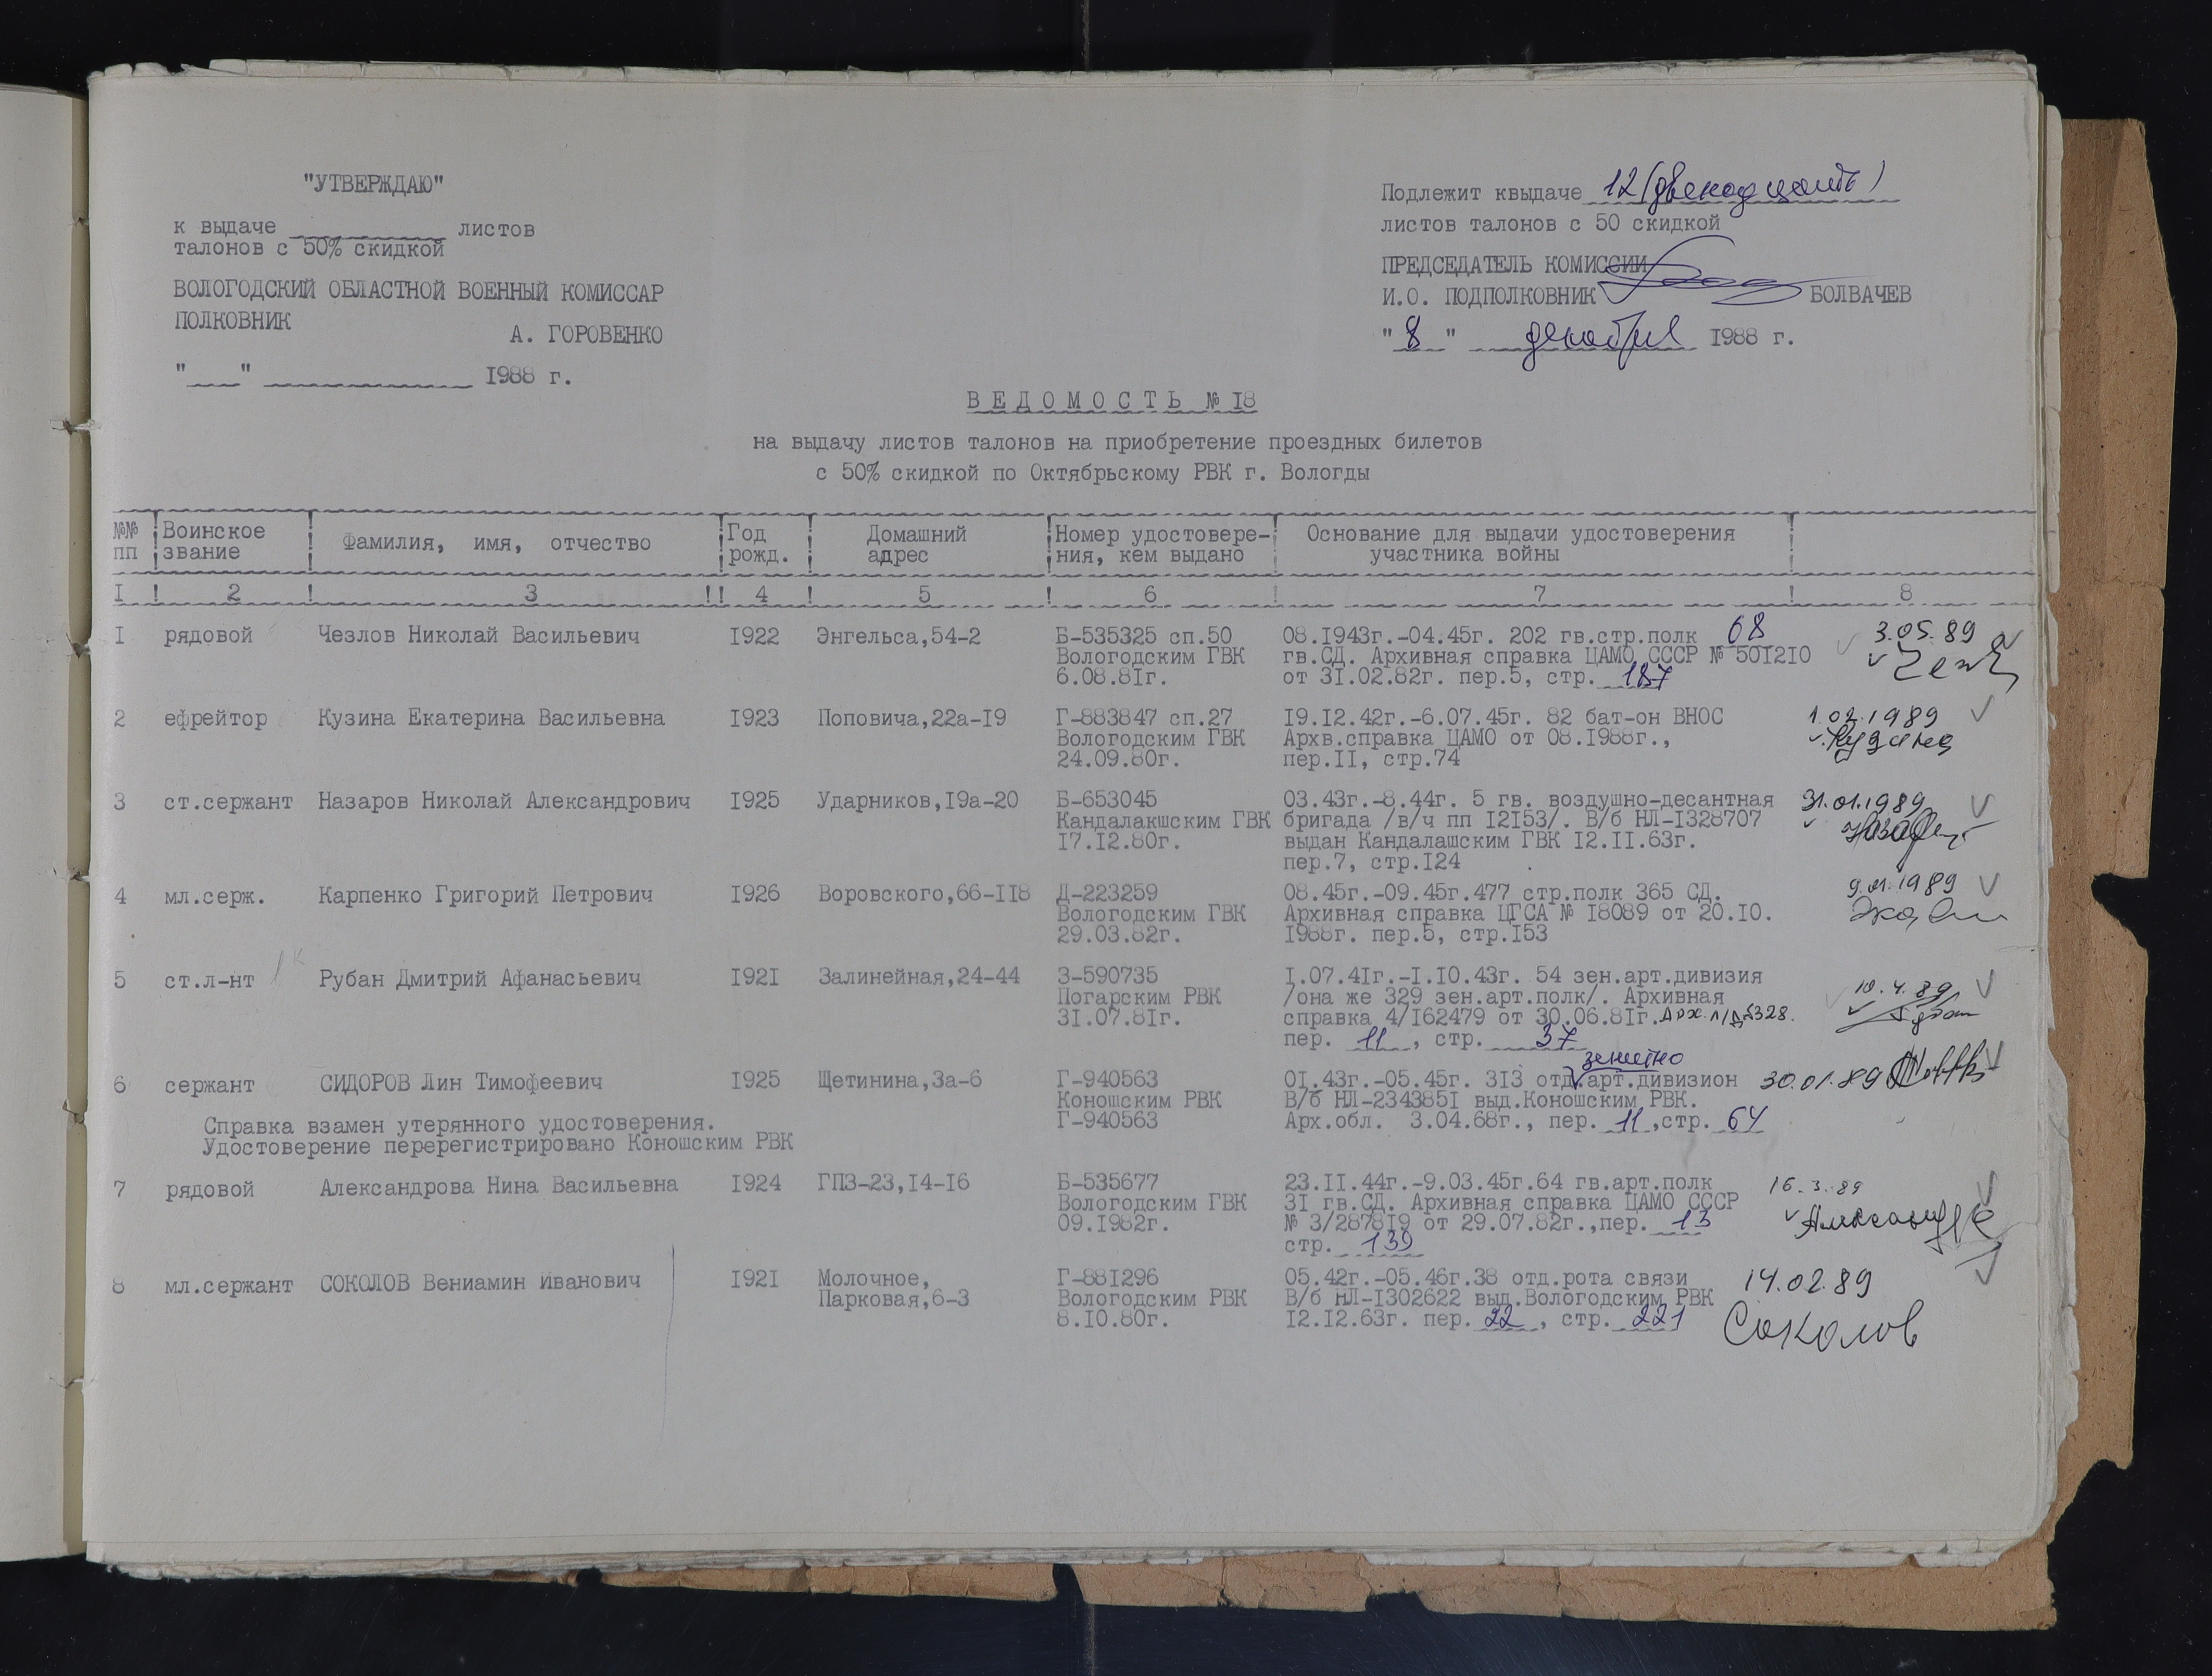 "УТВЕРЖДАЮ"
к выдаче ____________ листов
талонов с 50% скидкой
ВОЛОГОДСКИЙ ОБЛАСТНОЙ ВОЕННЫЙ КОМИССАР
ПОЛКОВНИК
А. ГОРОВЕНКО
"____" ________________ 1988 г.
Подлежит квыдаче 12 (двенадцать)
листов талонов с 50 скидкой
ПРЕДСЕДАТЕЛЬ КОМИССИИ
И.О. ПОДПОЛКОВНИК БОЛВАЧЕВ
"8" декабря 1988 г.
ВЕДОМОСТЬ № 18
на выдачу листов талонов на приобретение проездных билетов
с 50% скидкой по Октябрьскому РВК г. Вологды
№№ пп ! Воинское звание ! Фамилия, имя, отчество ! Год рожд. ! Домашний адрес ! Номер удостовере-ния, кем выдано ! Основание для выдачи удостоверения участника войны !
1 ! 2 ! 3 !! 4 ! 5 ! 6 ! 7 ! 8
1 рядовой Чезлов Николай Васильевич 1922 Энгельса,54-2 Б-535325 сп.50 08.1943г.-04.45г. 202 гв.стр.полк 68 3.05.89
Вологодским ГВК гв.СД. Архивная справка ЦАМО СССР № 501210
6.08.81г. от 31.02.82г. пер.5, стр. 187
2 ефрейтор Кузина Екатерина Васильевна 1923 Поповича,22а-19 Г-883847 сп.27 19.12.42г.-6.07.45г. 82 бат-он ВНОС 1.02.1989
Вологодским ГВК Архв.справка ЦАМО от 08.1988г., Кузина
24.09.80г. пер.II, стр.74
3 ст.сержант Назаров Николай Александрович 1925 Ударников,19а-20 Б-653045 03.43г.-8.44г. 5 гв. воздушно-десантная 31.01.1989
Кандалакшским ГВК бригада /в/ч пп 12153/. В/б НЛ-1328707
17.12.80г. выдан Кандалашским ГВК 12.11.63г.
пер.7, стр.124
4 мл.серж. Карпенко Григорий Петрович 1926 Воровского,66-118 Д-223259 08.45г.-09.45г.477 стр.полк 365 СД. 9.01.1989
Вологодским ГВК Архивная справка ЦГСА № 18089 от 20.10.
29.03.82г. 1988г. пер.5, стр.153
5 ст.л-нт Рубан Дмитрий Афанасьевич 1921 Залинейная,24-44 З-590735 1.07.41г.-1.10.43г. 54 зен.арт.дивизия 10.4.89
Погарским РВК /она же 329 зен.арт.полк/. Архивная
31.07.81г. справка 4/162479 от 30.06.81г. Арх. л/д 5328.
пер. 11, стр. 37
зенитно
6 сержант СИДОРОВ Лин Тимофеевич 1925 Щетинина,3а-6 Г-940563 01.43г.-05.45г. 313 отд.арт.дивизион 30.01.89
Коношским РВК В/б НЛ-2343851 выд.Коношским РВК.
Г-940563 Арх.обл. 3.04.68г., пер. 11,стр. 64
Справка взамен утерянного удостоверения.
Удостоверение перерегистрировано Коношским РВК
7 рядовой Александрова Нина Васильевна 1924 ГПЗ-23,14-16 Б-535677 23.11.44г.-9.03.45г.64 гв.арт.полк 16.3.89
Вологодским ГВК 31 гв.СД. Архивная справка ЦАМО СССР
09.1982г. № 3/287819 от 29.07.82г.,пер. 13
стр. 139
8 мл.сержант СОКОЛОВ Вениамин Иванович 1921 Молочное, Г-881296 05.42г.-05.46г.38 отд.рота связи 14.02.89
Парковая,6-3 Вологодским РВК В/б НЛ-1302622 выд.Вологодским РВК
8.10.80г. 12.12.63г. пер. 22, стр. 221 Соколов